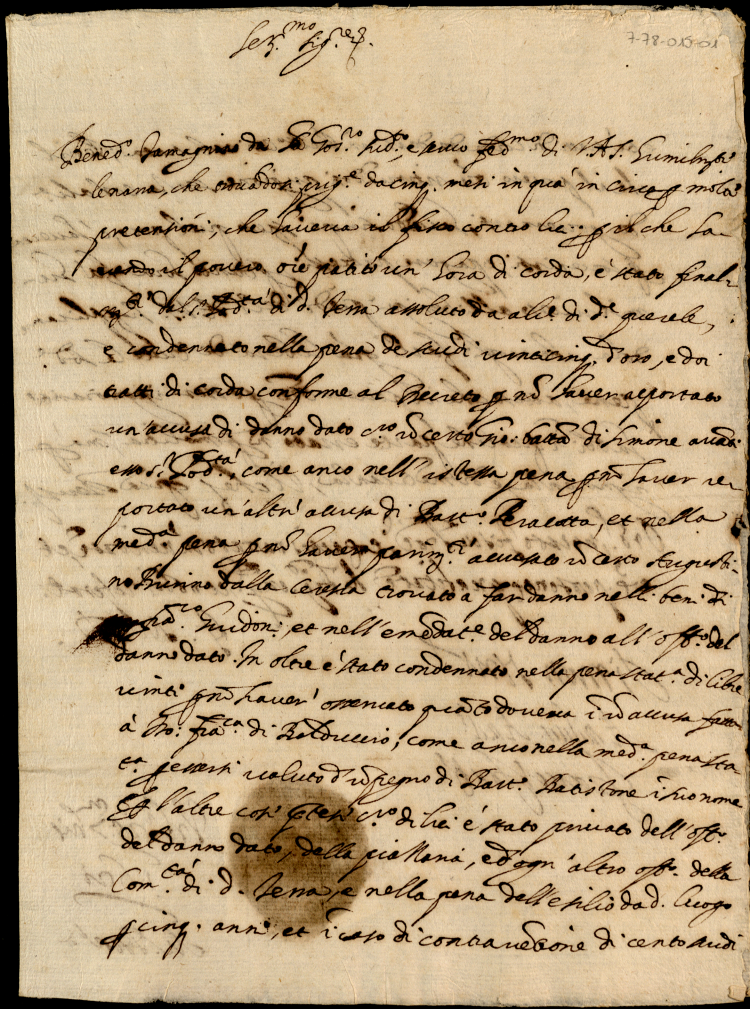 Ser.mo Sig.re
7-78-015-01
Bened.o Tamagnini da S. suo fed.mo di V.A.S. humilm.te
le narra, che trovandosi prig.e da cinq. mesi in quà in circa p molte
pretensioni, che haveva il fisco contro lui p il che ha-
vendo il povero o.re patito un' hora di corda, è stato final-
m.te dal S. Pod.tà di d. Terra assoluto da alc.e di d.e querele,
e condennato nella pena de scudi vinticinq. d'oro, e doi
tratti di corda conforme al decreto p nõ haver aportato
un'accusa di danno dato c.ro un certo Gio: batta di Simone avanti
esso S. Pod.tà, come anco nell'istessa pena p nõ haver re-
portato un'altr' accusa di Bart.o, et nella
med.a pena p nõ haver parim.te accusato un certo Augusti-
no dalla Ceresa trovato a far danno nelli beni di
Guidoni, et nell'emẽdat.e del danno all'off.o del
danno dato. In oltre è stato condennato nella pena stat.a di libre
vinti p nõ haver' osservato quãto doveva ĩ un accusa fatta
à Gio: fra.ca di Balduccio, come anco nella med.a pena sta-
t.a p essersi valuto d'un pegno di Bart.o Batistone ĩ suo nome
Et l'altre cose p.tese c.ro di lui è stato privato dell'off.o
del danno dato, della piazzaria, ed ogn'altro off.o della
Com.tà di d. Terra, e nella pena dell'esilio da d. luogo
p cinq. anni, et ĩ caso di contravẽtione di cento scudi